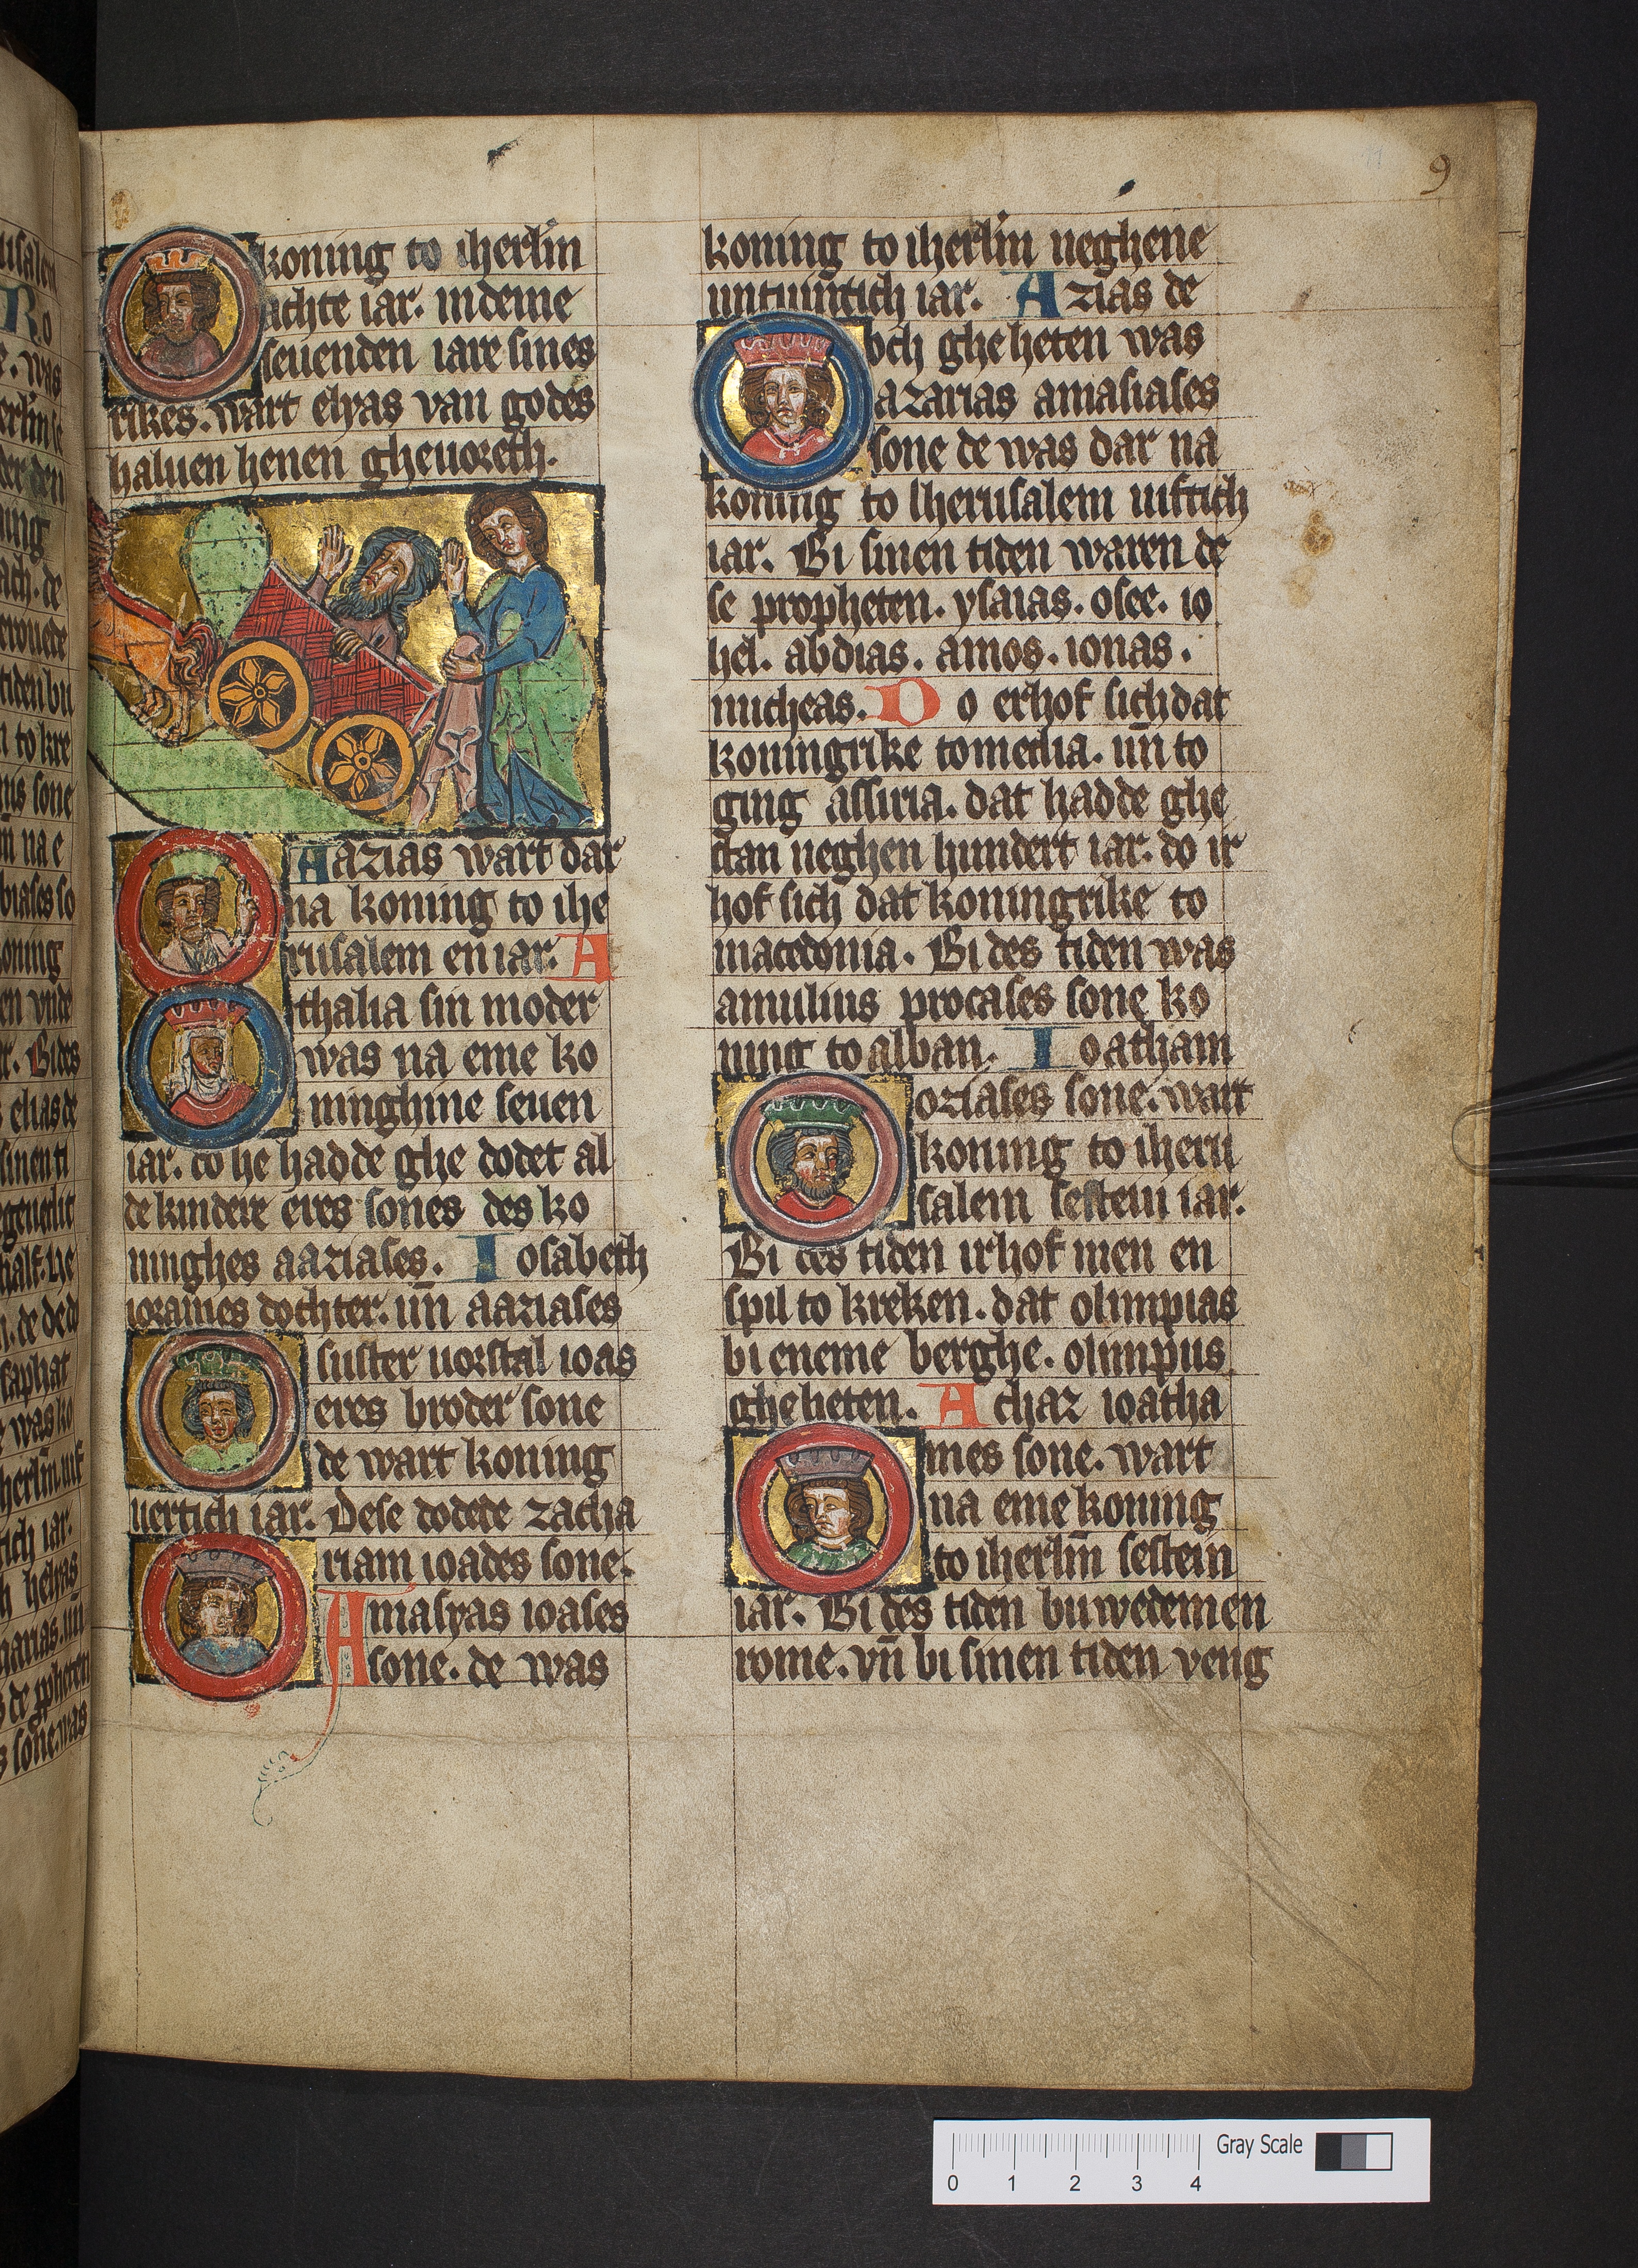 9
koning to iherlm̄
achte iar. indeme
seuenden iare sines
rikes. wart elyas van godes
haluen henen gheuoreth.
Aazias wart dar
na koning to ihe
rusalem en iar. A
thalia sin moder
was na eme ko
ninghine seuen
iar. do he hadde ghe dodet al
de kindere eres sones des ko
ninghes aaziases. Iosabeth
iorames dochter. un̄ aaziases
suster uorstal ioas
eres broder sone
de wart koning
uertich iar. Dese dodede zacha
riam ioades sone.
Amasyas ioases
sone. de was
koning to iherlm̄ neghene
untuintich iar. Azias de
och ghe heten was
azarias amasiases
sone de was dar na
koning to Iherusalem uiftich
iar. Bi sinen tiden waren de
se propheten. ysaias. osee. io
hel. abdias. amos. ionas.
micheas. Do erhof sich dat
koningrike to media. un̄ to
ging assiria. dat hadde ghe
stan neghen hundert iar. do ir
hof sich dat koningrike to
macedonia. Bi des tiden was
amulius procases sone ko
ning to alban. Ioatham
oziases sone. wart
koning to iheru
salem sestein iar.
Bi des tiden irhof men en
spil to kreken. dat olimpias
bi eneme berghe. olimpus
ghe heten. Achaz ioatha
mes sone. wart
na eme koning
to iherlm̄ sestein
iar. Bi des tiden buwede men
rome. vn̄ bi sinen tiden veng
0 1 2 3 4 Gray Scale